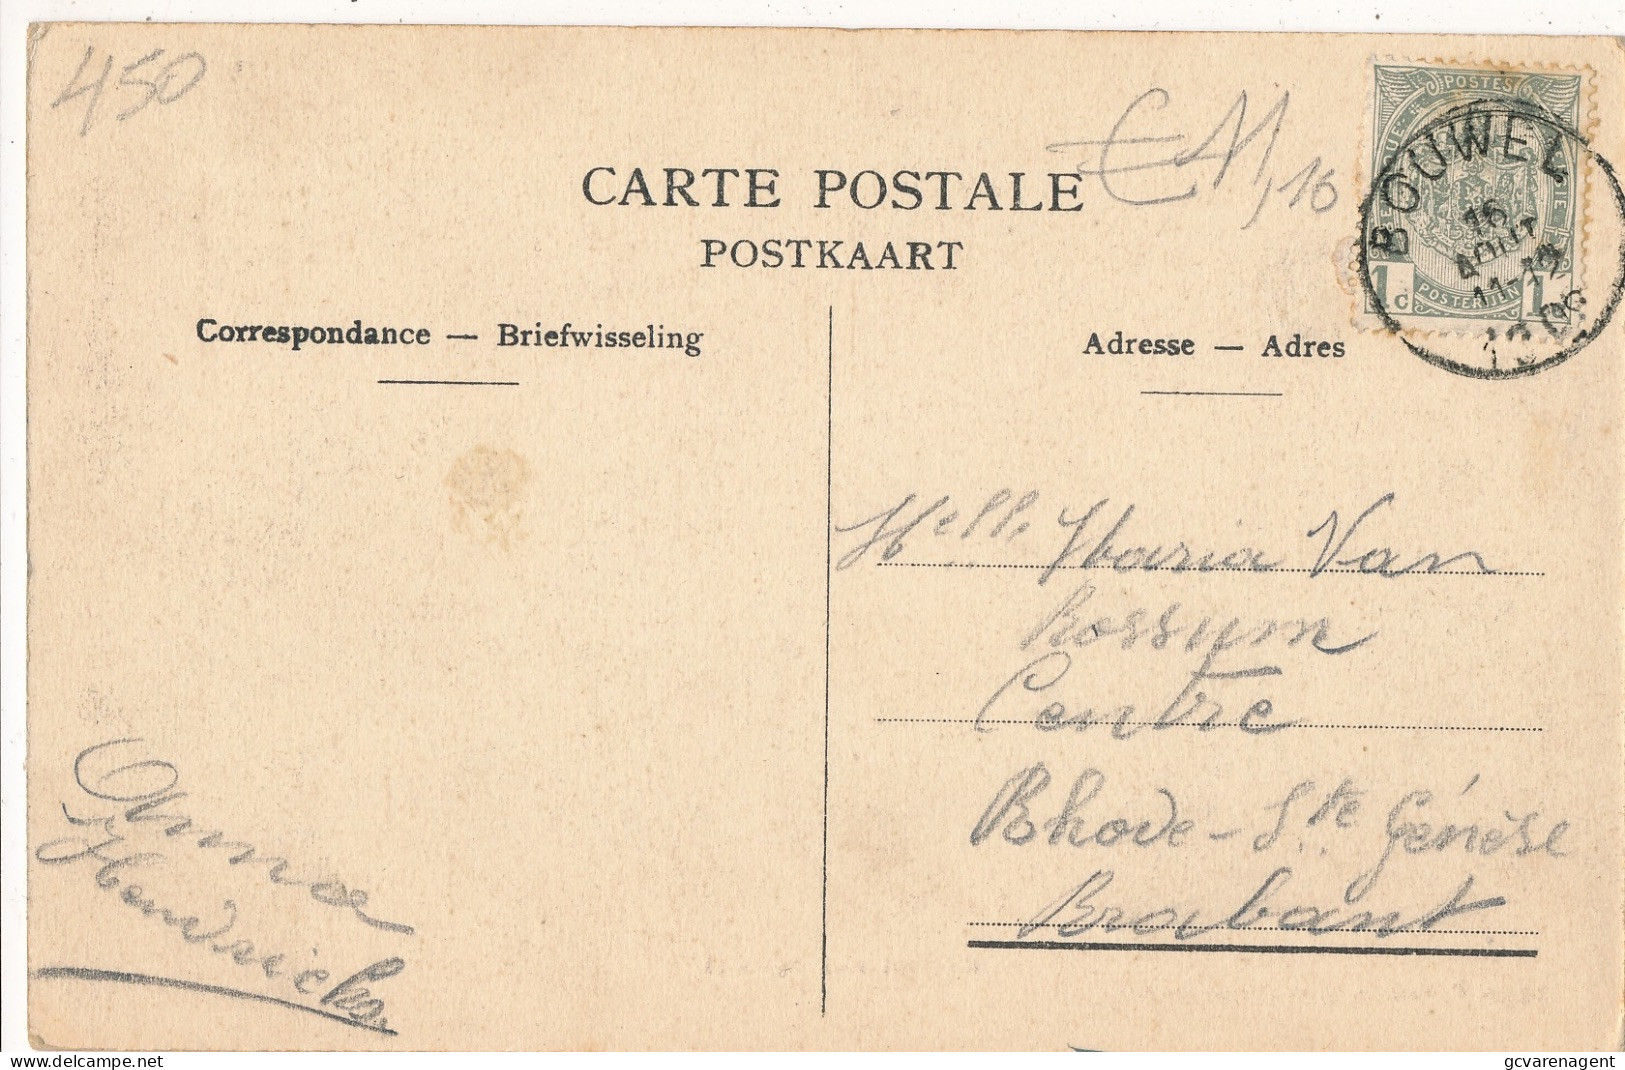 450
€ 11,10
CARTE POSTALE
POSTKAART
POSTES
BELGIQUE
1 c
POSTERIJEN
1
BOUWEL
16
AOUT
11-12
1906
Correspondance — Briefwisseling
Adresse — Adres
Melle. Maria Van
Rossum
Centre
Rhode-Ste Génèse
Brabant
Anna
Hendrickx
delcampe.net
gcvarenagent